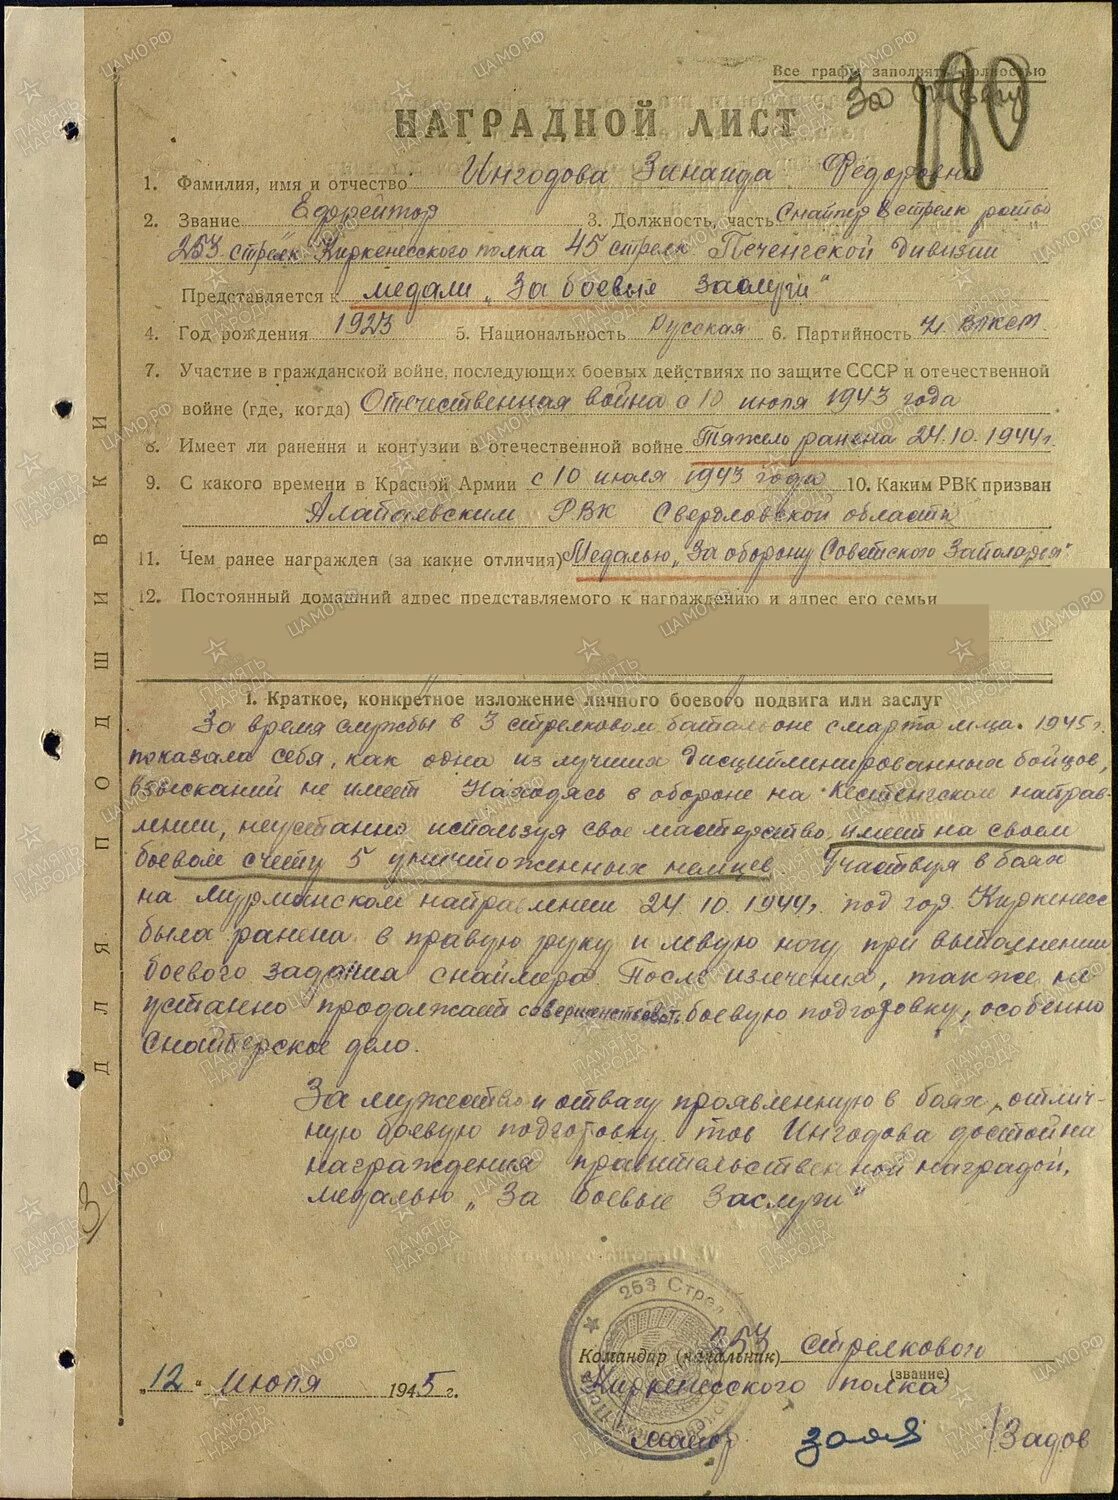 Все графы заполнять полностью
За отвагу
180
НАГРАДНОЙ ЛИСТ
1. Фамилия, имя и отчество Ингодова Зинаида Федоровна
2. Звание Ефрейтор 3. Должность, часть Снайпер 8 стрелк роты
253 стрелк Киркенесского полка 45 стрелк Печенгской дивизии
Представляется к медали „За боевые заслуги"
4. Год рождения 1923 5. Национальность Русская 6. Партийность чл ВЛКСМ
7. Участие в гражданской войне, последующих боевых действиях по защите СССР и отечественной
войне (где, когда) Отечественная война с 10 июля 1943 года
8. Имеет ли ранения и контузии в отечественной войне Тяжело ранена 24.10.1944г.
9. С какого времени в Красной Армии с 10 июля 1943 года 10. Каким РВК призван
Алапаевским РВК Свердловской области
11. Чем ранее награжден (за какие отличия) Медалью „За оборону Советского Заполярья"
12. Постоянный домашний адрес представляемого к награждению и адрес его семьи
I. Краткое, конкретное изложение личного боевого подвига или заслуг
За время службы в 3 стрелковом батальоне с марта м-ца. 1945 г.
показала себя, как одна из лучших дисциплинированных бойцов,
взысканий не имеет Находясь в обороне на Кестенгском направ-
лении, неустанно используя свое мастерство, имеет на своем
боевом счету 5 уничтоженных немцев. Участвуя в боях
на Мурманском направлении 24.10.1944г. под гор. Киркенес
была ранена в правую руку и левую ногу при выполнении
боевого задания снайпера. После излечения, так же не
устанно продолжает совершенствовать боевую подготовку, особенно
снайперское дело.
За мужество и отвагу проявленную в боях, отлич-
ную боевую подготовку тов Ингодова достойна
награждения правительственной наградой,
медалью „За боевые заслуги"
253 Стрел
Командир (начальник) 253 стрелкового
(звание)
Киркенесского полка
„12" июля 1945 г.
майор /Задов
ДЛЯ ПОДШИВКИ
ПАМЯТЬ НАРОДА
ЦАМО.РФ